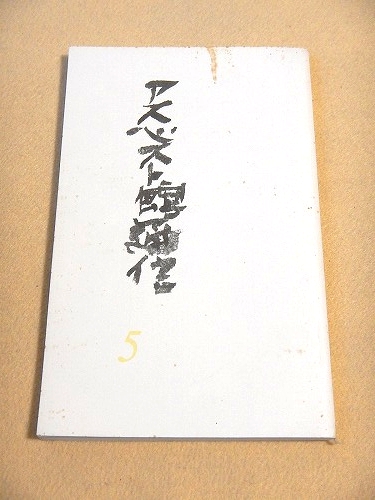 アスベスト館通信
5